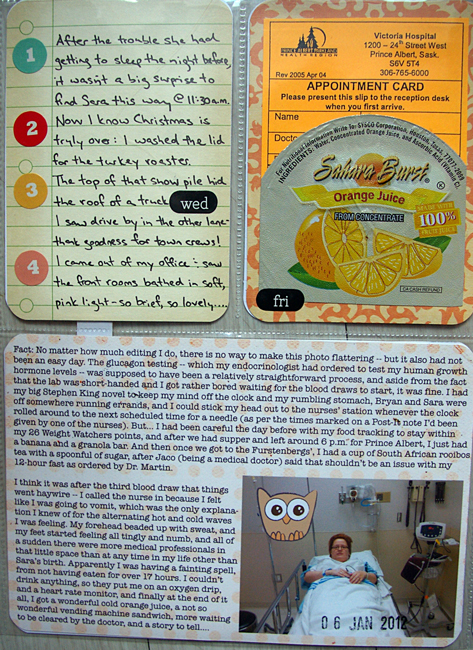 1
After the trouble she had
getting to sleep the night before,
it wasn't a big surprise to
find Sara this way @ 11:30 a.m.
2
Now I know Christmas is
truly over: I washed the lid
for the turkey roaster.
3
The top of that snow pile hid
the roof of a truck
I saw drive by in the other lane-
thank goodness for town crews!
wed
4
I came out of my office + saw
the front rooms bathed in soft,
pink light - so brief, so lovely....
PRINCE ALBERT PARKLAND
HEALTH REGION
Rev 2005 Apr 04
Victoria Hospital
1200 – 24th Street West
Prince Albert, Sask.
S6V 5T4
306-765-6000
APPOINTMENT CARD
Please present this slip to the reception desk
when you first arrive.
Name
Docto
For Nutritional Information Write To: SYSCO Corporation, Houston, Texas 77077-2099
INGREDIENTS: Water, Concentrated Orange Juice, and Ascorbic Acid (Vitamin C).
Sahara Burst®
Orange Juice
FROM CONCENTRATE
MADE WITH
100%
FRUIT JUICE
CA CASH REFUND
fri
Fact: No matter how much editing I do, there is no way to make this photo flattering -- but it also had not
been an easy day. The glucagon testing -- which my endocrinologist had ordered to test my human growth
hormone levels -- was supposed to have been a relatively straightforward process, and aside from the fact
that the lab was short-handed and I got rather bored waiting for the blood draws to start, it was fine. I had
my big Stephen King novel to keep my mind off the clock and my rumbling stomach, Bryan and Sara were
off somewhere running errands, and I could stick my head out to the nurses' station whenever the clock
rolled around to the next scheduled time for a needle (as per the times marked on a Post-It note I'd been
given by one of the nurses). But... I had been careful the day before with my food tracking to stay within
my 26 Weight Watchers points, and after we had supper and left around 6 p.m. for Prince Albert, I just had
a banana and a granola bar. And then once we got to the Furstenbergs', I had a cup of South African rooibos
tea with a spoonful of sugar, after Jaco (being a medical doctor) said that shouldn't be an issue with my
12-hour fast as ordered by Dr. Martin.
I think it was after the third blood draw that things
went haywire -- I called the nurse in because I felt
like I was going to vomit, which was the only explana-
tion I knew of for the alternating hot and cold waves
I was feeling. My forehead beaded up with sweat, and
my feet started feeling all tingly and numb, and all of
a sudden there were more medical professionals in
that little space than at any time in my life other than
Sara's birth. Apparently I was having a fainting spell,
from not having eaten for over 17 hours. I couldn't
drink anything, so they put me on an oxygen drip,
and a heart rate monitor, and finally at the end of it
all, I got a wonderful cold orange juice, a not so
wonderful vending machine sandwich, more waiting
to be cleared by the doctor, and a story to tell....
06 JAN 2012